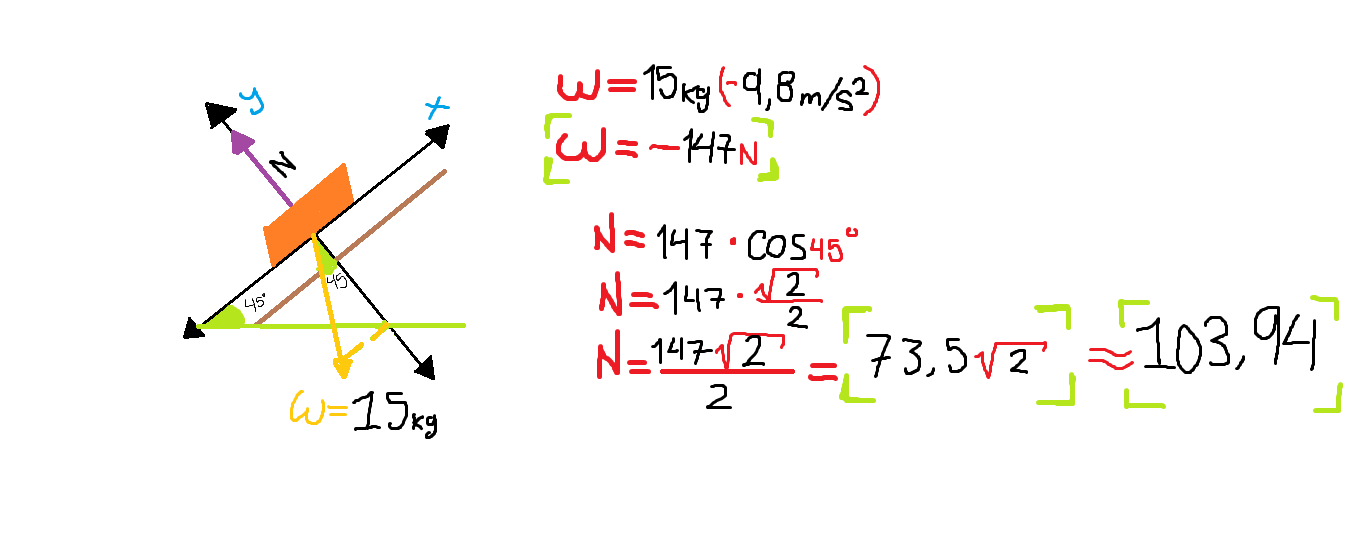 y
x
N
45°
45
ω=15kg
ω=15kg(-9,8m/s²)
ω=-147N
N=147·cos45°
N=147·√2/2
N=147√2/2=73,5√2≈103,94